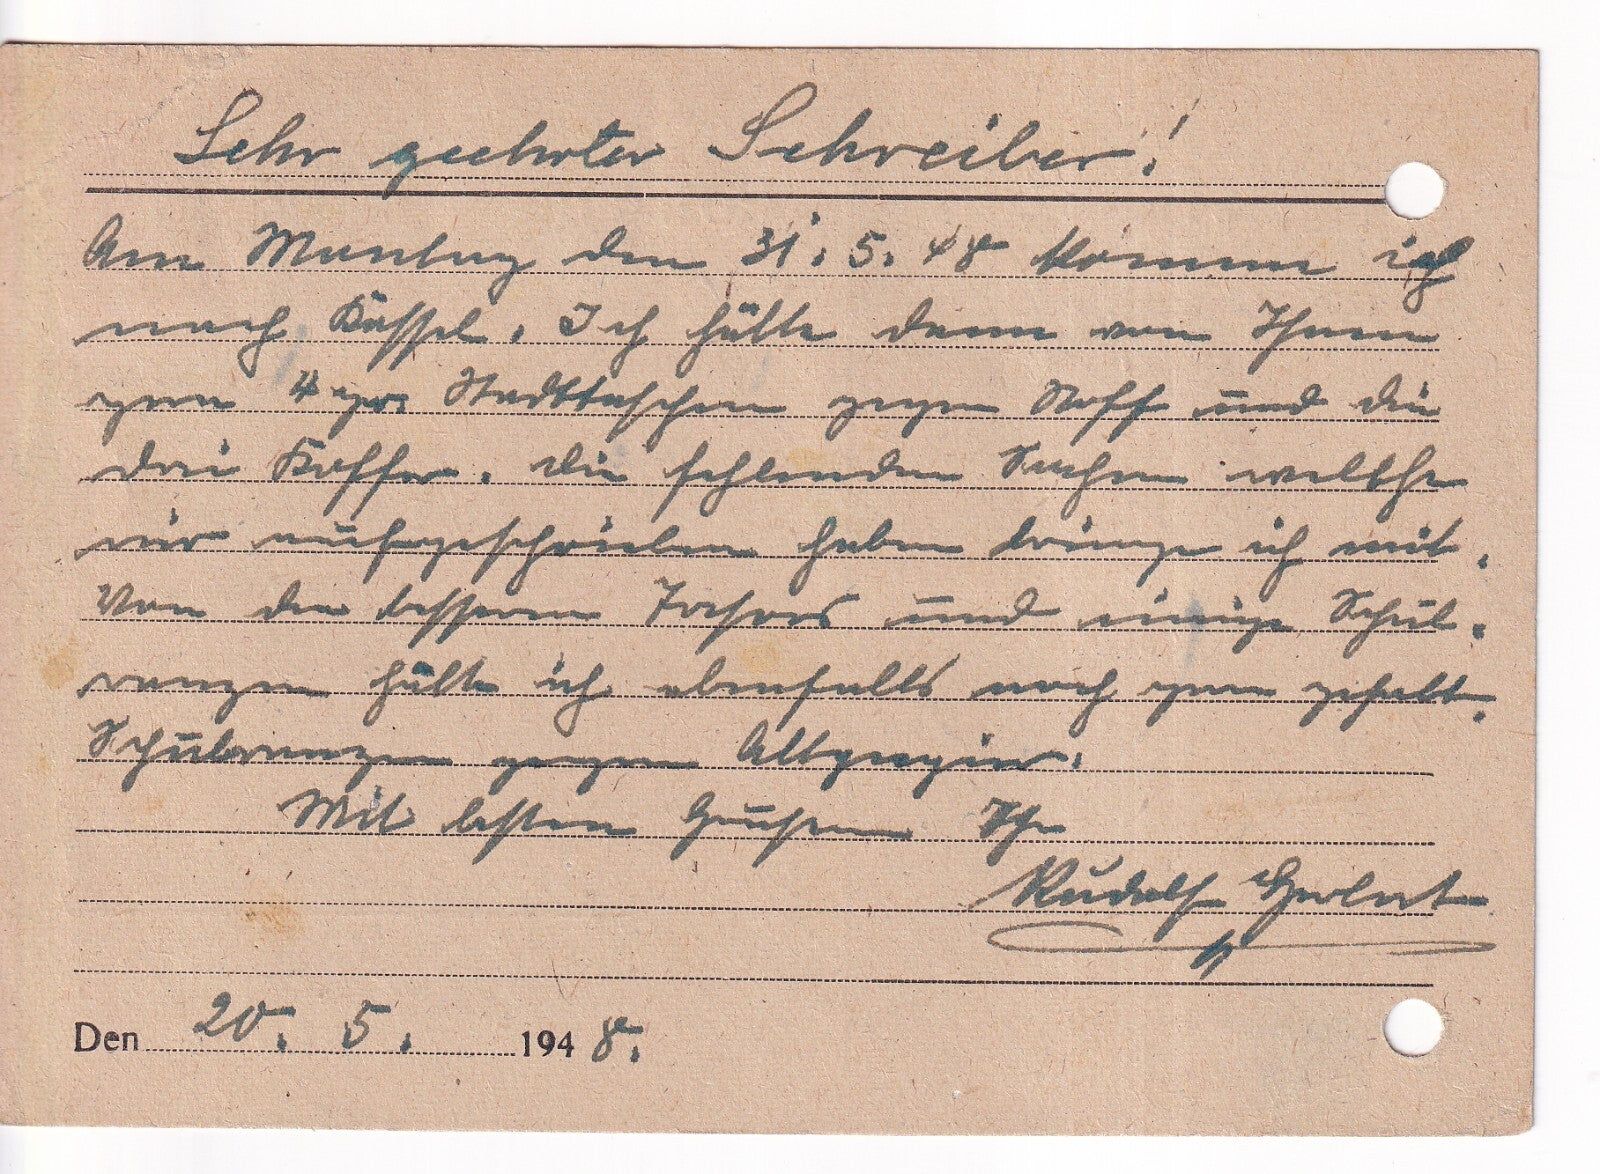 Sehr geehrter Schreiber!
Am Montag den 31. 5. 48 komme ich
nach Kassel. Ich hätte dann von Ihnen
gern 4 gr. Stadttaschen gegen Stoff und die
drei Koffer. Die fehlenden Sachen welche
wir aufgeschrieben haben bringe ich mit.
Von den besseren und einige Schul-
ranzen hätte ich ebenfalls noch gern gehabt.
Schulranzen gegen Altpapier.
Mit besten Grüßen Ihr
Rudolf
Den 20. 5. 1948.